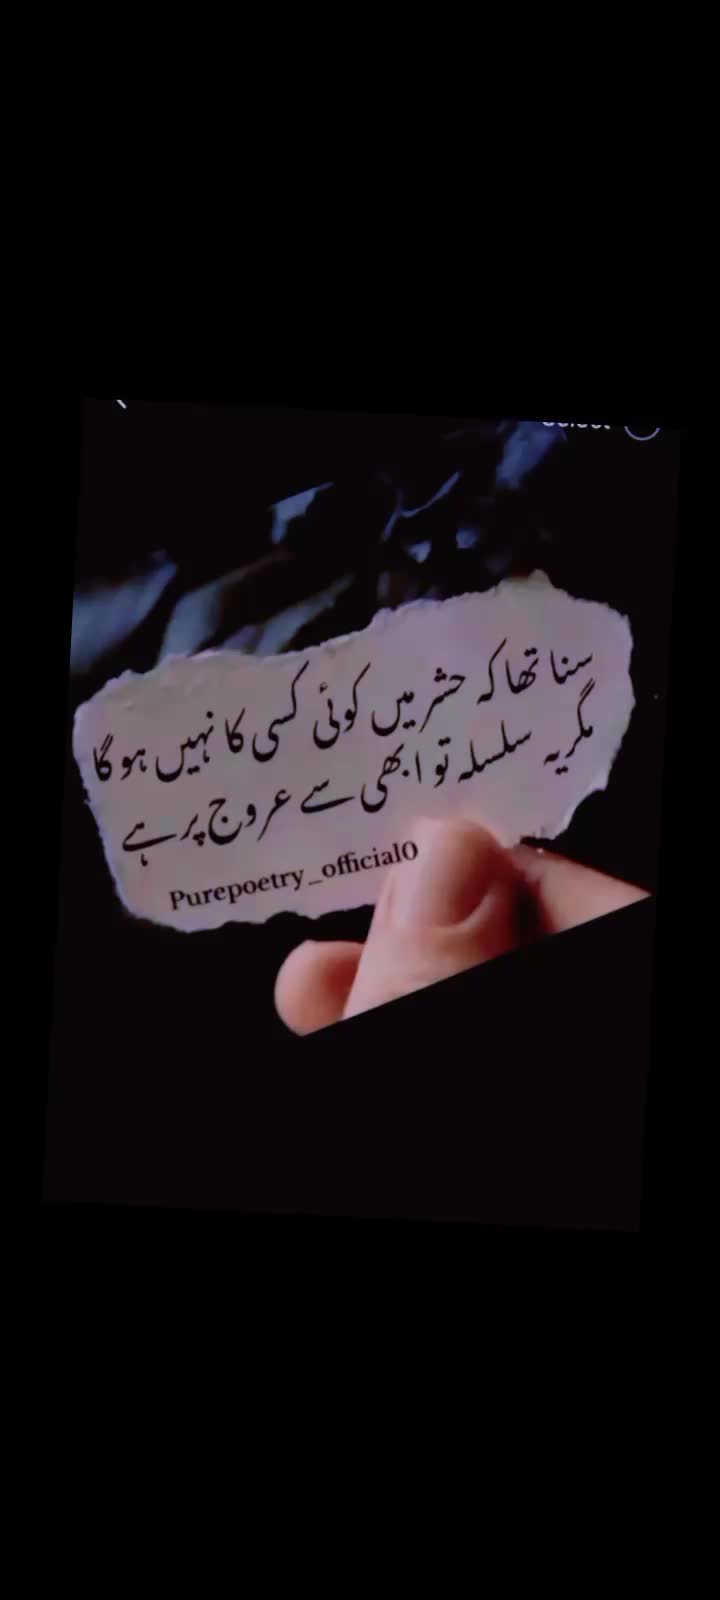 سنا تھا کہ حشر میں کوئی کسی کا نہیں ہو گا
مگر یہ سلسلہ تو ابھی سے عروج پر ہے
Purepoetry_official0